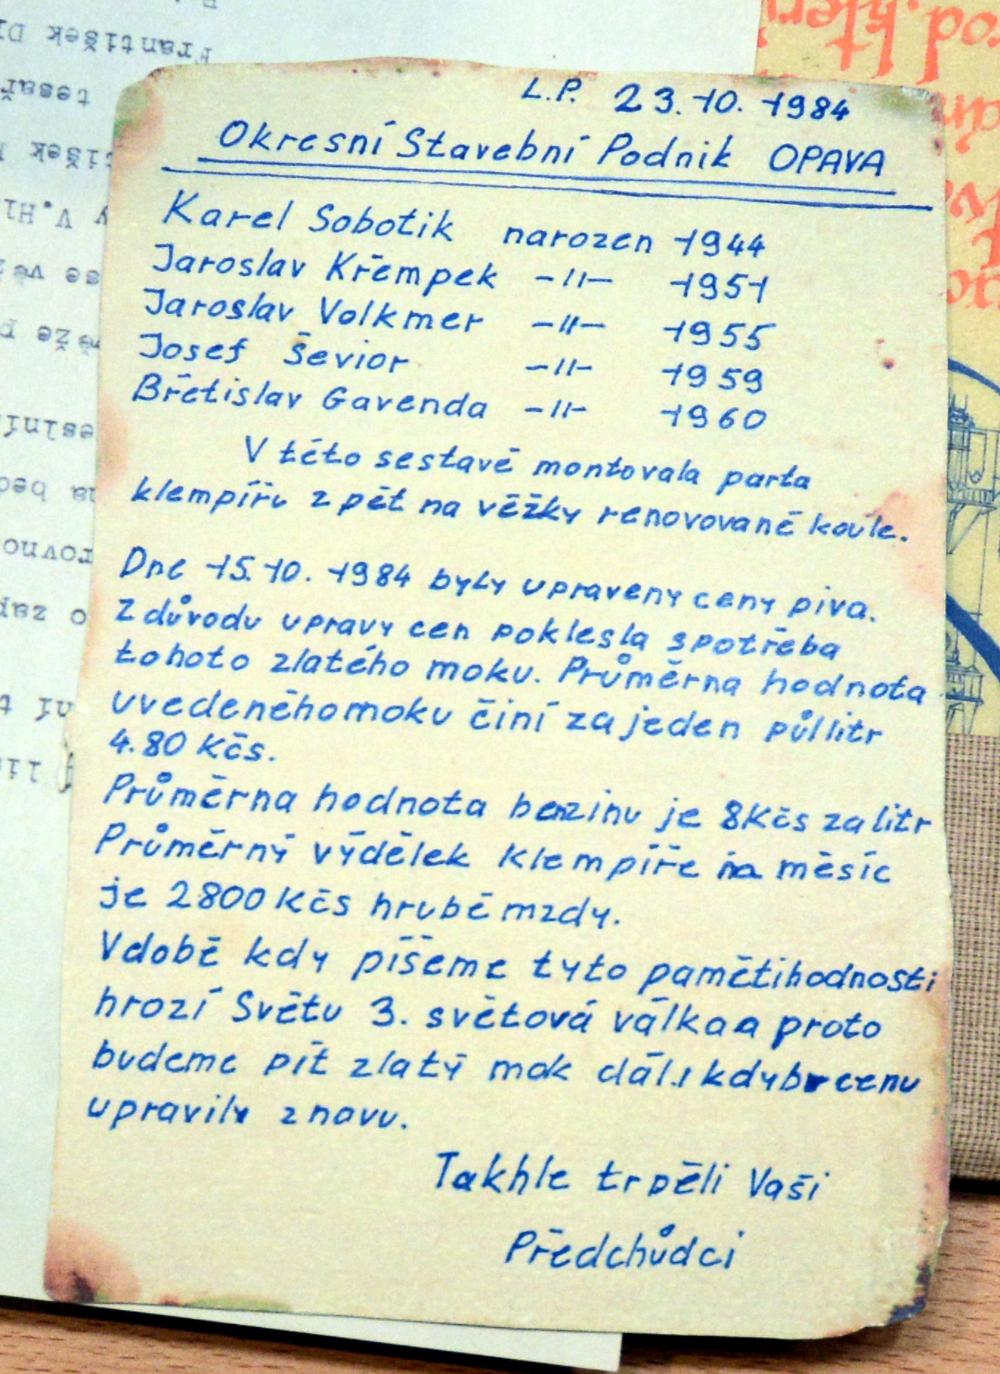 L.P. 23.10. 1984
Okresní Stavební Podnik OPAVA
Karel Sobotik narozen 1944
Jaroslav Křempek -〃- 1951
Jaroslav Volkmer -〃- 1955
Josef Ševior -〃- 1959
Břetislav Gavenda -〃- 1960
V této sestavě montovala parta
klempířu zpět na věžky renovované koule.
Dne 15.10. 1984 byly upraveny ceny piva.
Z důvodu upravy cen poklesla spotřeba
tohoto zlatého moku. Průměrna hodnota
uvedeného moku činí za jeden půllitr
4.80 Kčs.
Průměrna hodnota benzinu je 8Kčs za litr
Průměrný výdělek klempíře na měsíc
je 2800 Kčs hrubé mzdy.
V době kdy píšeme tyto pamětihodnosti
hrozí Světu 3. světová válka a proto
budeme pít zlatý mok dál i kdyby cenu
upravily znovu.
Takhle trpěli Vaši
Předchůdci
František
tesař
V.Hl
že p
zap